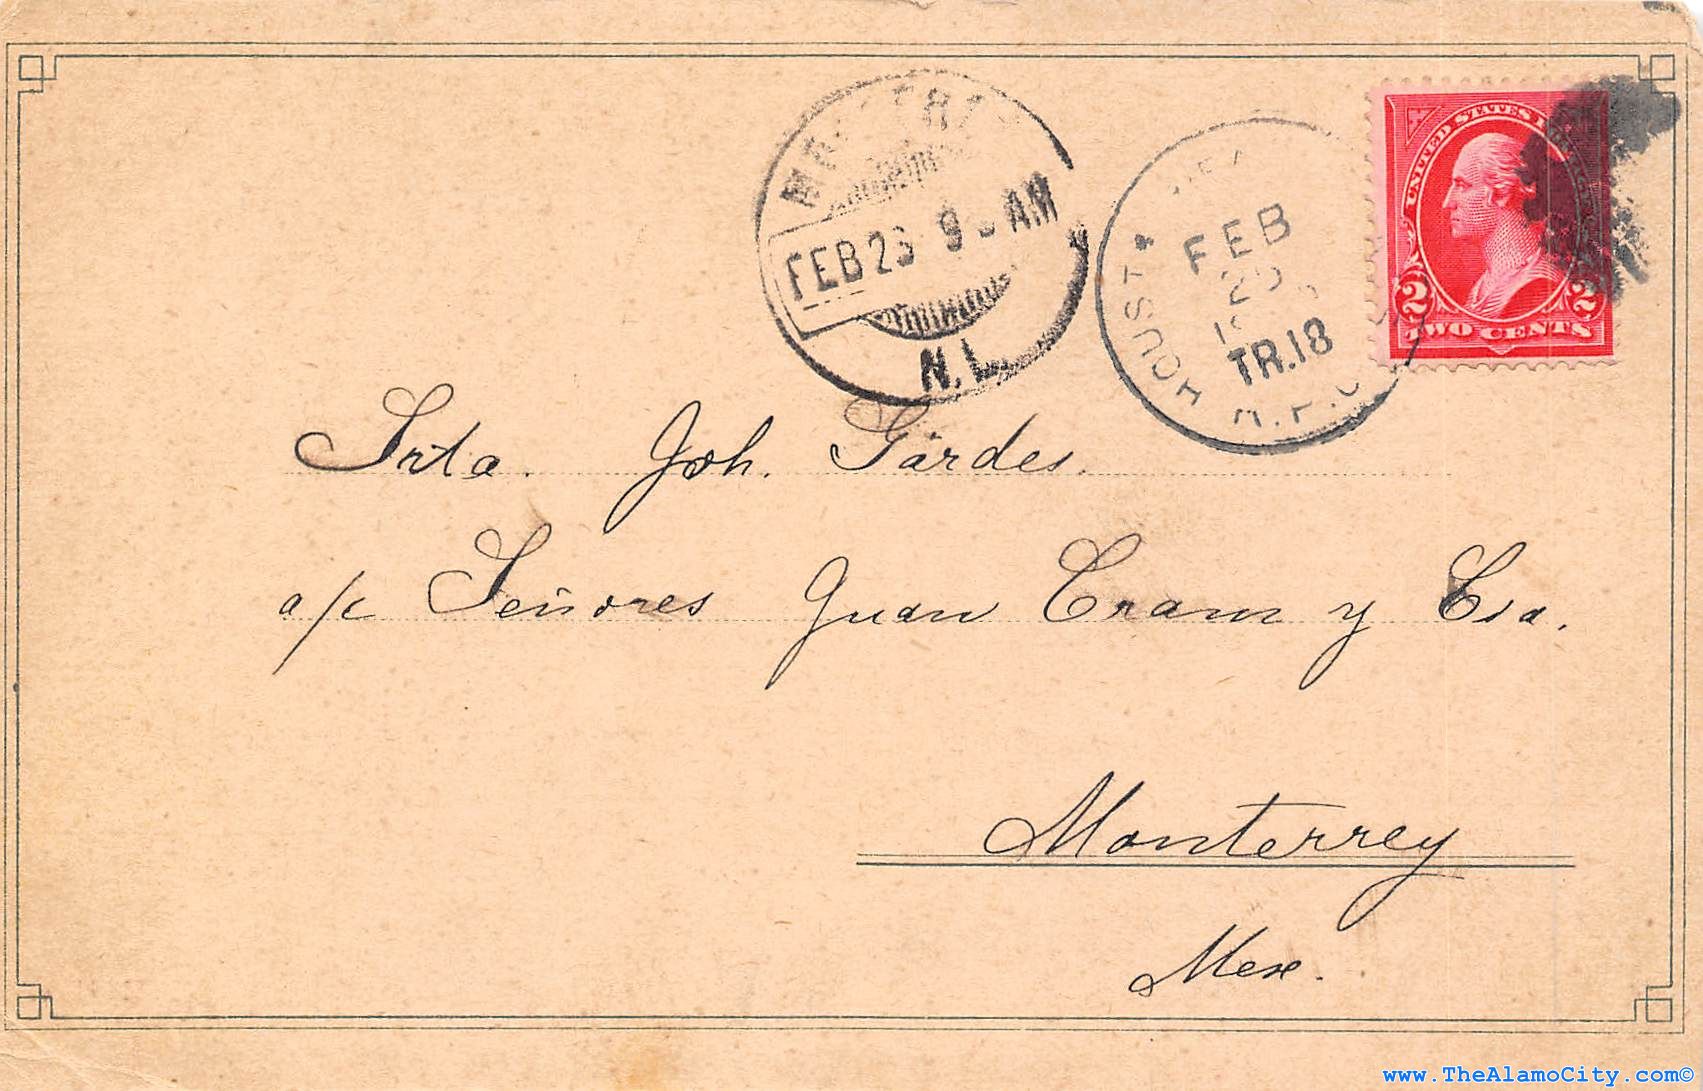 FEB 23 9 AM
N.L.
FEB
TR.18
HOUST
TWO CENTS
2 2
Srta. Joh. Gärdes.
a/c Señores Juan Cram y Cia.
Monterrey
Mex.
www.TheAlamoCity.com©